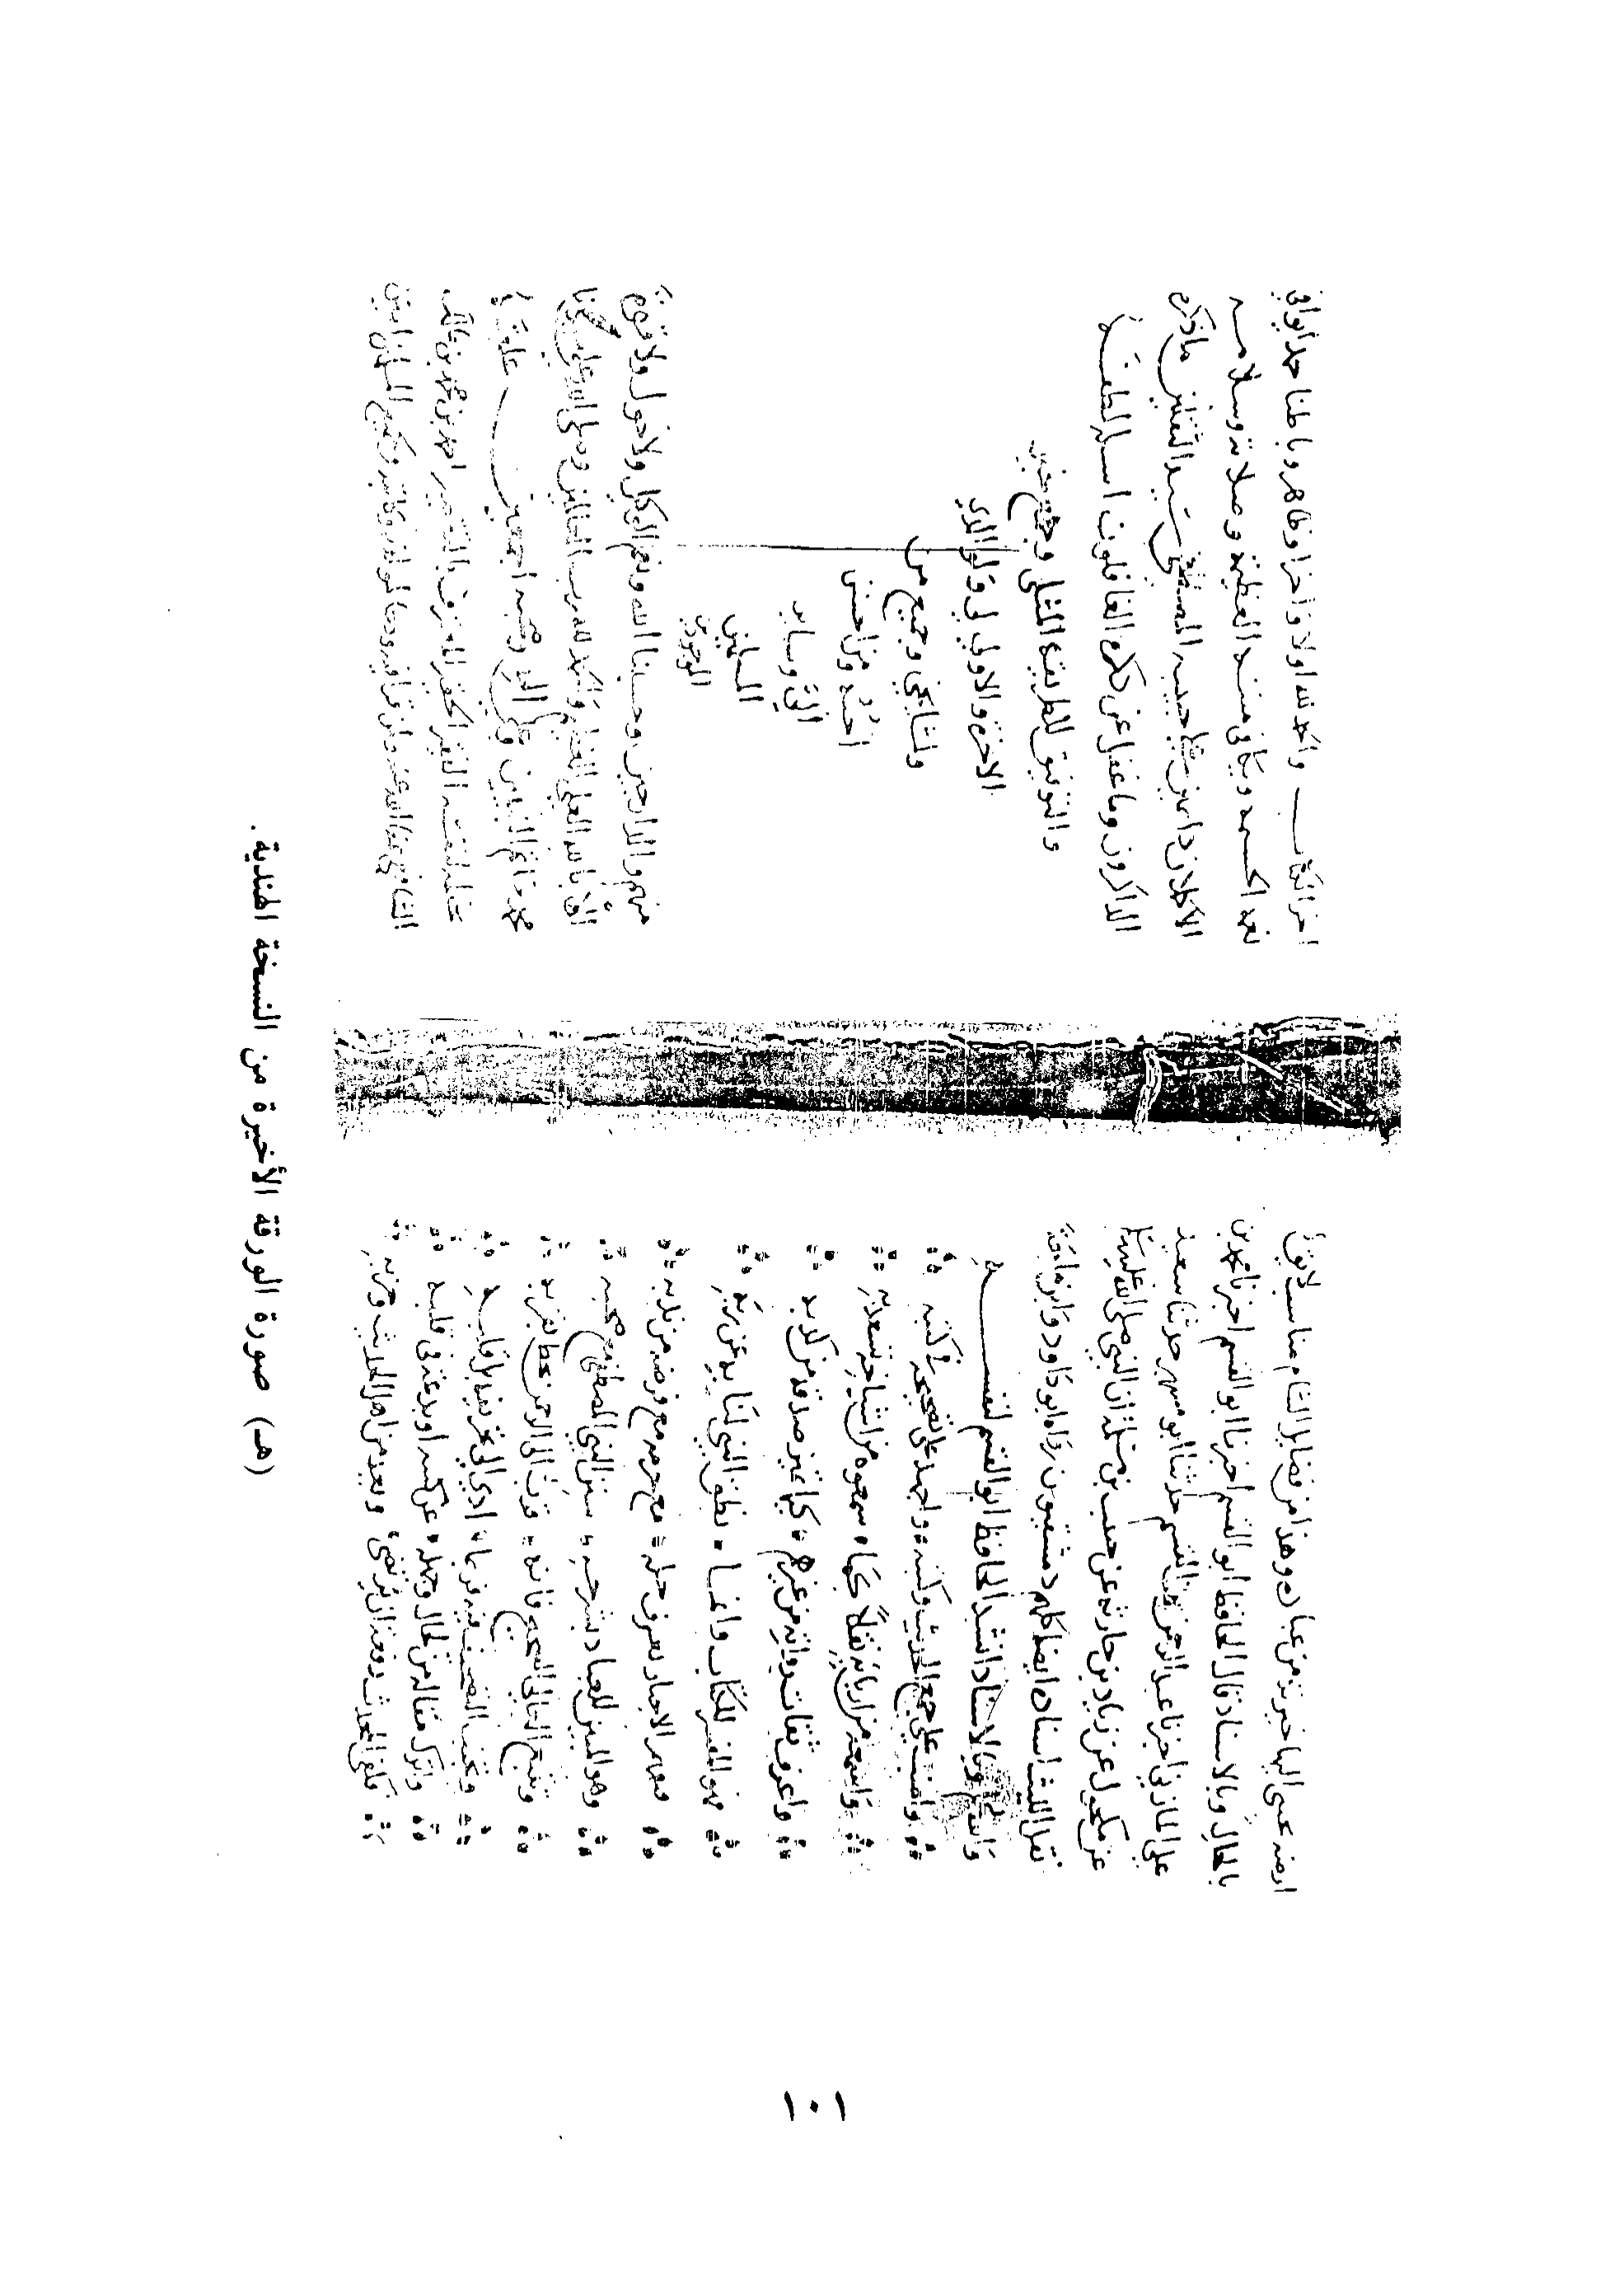 ارضه يجتبى اليها خيرته من عباده وهذا من فضايل الشام مناسب لا يق
بالحال وبالاسناد قال الحافظ ابو القسم اخبرنا ابو القسم اخبرنا محمد بن
علي المازني اخبرنا عبد الرحمن القسم حدثنا ابو مسهر حدثنا سعيد
عن مكحول عن زياد بن جارية عن حبيب بن مسلمة ان النبي صلى الله عليه وسلم
نفل الثلث اسناده ايضا كلهم دمشقيون رواه ابو داود وابن ماجة
والله اعلم وبالاسناد انشد الحافظ ابو القسم لنفسه
واظب على جمع الحديث وكتبه واجهد على تصحيحه في كتبه
واسمعه من اربابه نقلا كما سمعوه من اشياخهم تسعد به
واعرف ثقات رواته من غيرهم كيما تميز صدقه من كذبه
فهو المفسر للكتاب وانما نطق النبي لنا به عن ربه
فتفهم الاخبار تعرف حله مع حرمه مع فرضه من ندبه
وهو المبين للعباد بشرحه سنن النبي المصطفى مع صحبه
وتتبع العالي الصحيح فانه قرب الى الرحمن تحظ بقربه
وتجنب التصحيف فيه فربما ادى الى تحريفه بل قلبه
واترك مقالة من لحاك بجهله عن كتبه او بدعة في قلبه
فكفى المحدث رفعة ان يرتضى ويعد من اهل الحديث وحزبه
اخر الكتاب والحمد لله اولا واخرا وظاهرا وباطنا حمدا يوافي
نعمه الجسمه ويكافي مننه العظيمة وصلاته وسلامه
الاكملان دايمين على حبيبه المصطفى سيد الثقلين ما ذكره
الذاكرون وما غفل عن ذكره الغافلون اسله اللطف
والتوفيق للطريقة المثلى وجمع خيري
الاخرة والاولى لي ولوالدي
ولمشايخي وجميع من
احبه ومن احسن
الي وساير
المسلمين
الموجودين
منهم والدارجين وحسبنا الله ونعم الوكيل ولا حول ولا قوة
الا بالله العلي العظيم والحمد لله رب العالمين وصلى الله على سيدنا
محمد خاتم النبيين وعلى اله وصحبه اجمعين
علقه لنفسه الفقير الحقير المعترف بالتقصير احمد بن محمد بن
الشافعي عفا الله عنه وعن قرا فيه ودعا لمولفه وكاتبه وجميع المسلمين امين
(هـ) صورة الورقة الأخيرة من النسخة الهندية.
١٠١